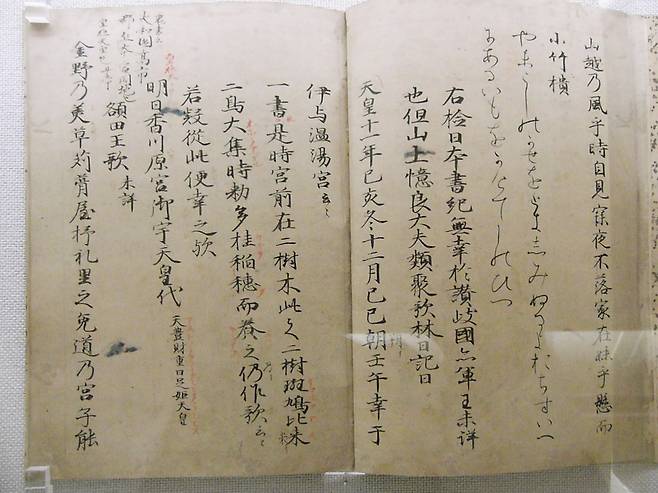 山越乃風乎時自見寐夜不落家在妹乎懸而
小竹櫃
やまこしのかせをときしみぬるよおちすいへ
にあるいもをかけてしのひつ
右檢日本書紀無幸於讃岐國亦軍王未詳
也但山上憶良大夫類聚歌林曰記曰
天皇十一年己亥冬十二月己巳朔壬午幸于
伊与温湯宮云々
一書是時宮前在二樹木此之二樹斑鳩比米
二鳥大集時勅多桂稲穂而養之仍作歌云々
若疑從此便幸之歟
明日香川原宮御宇天皇代 天豊財重日足姫天皇
額田王歌 未詳
大和國高市
金野乃美草苅葺屋杼礼里之兎道乃宮子能